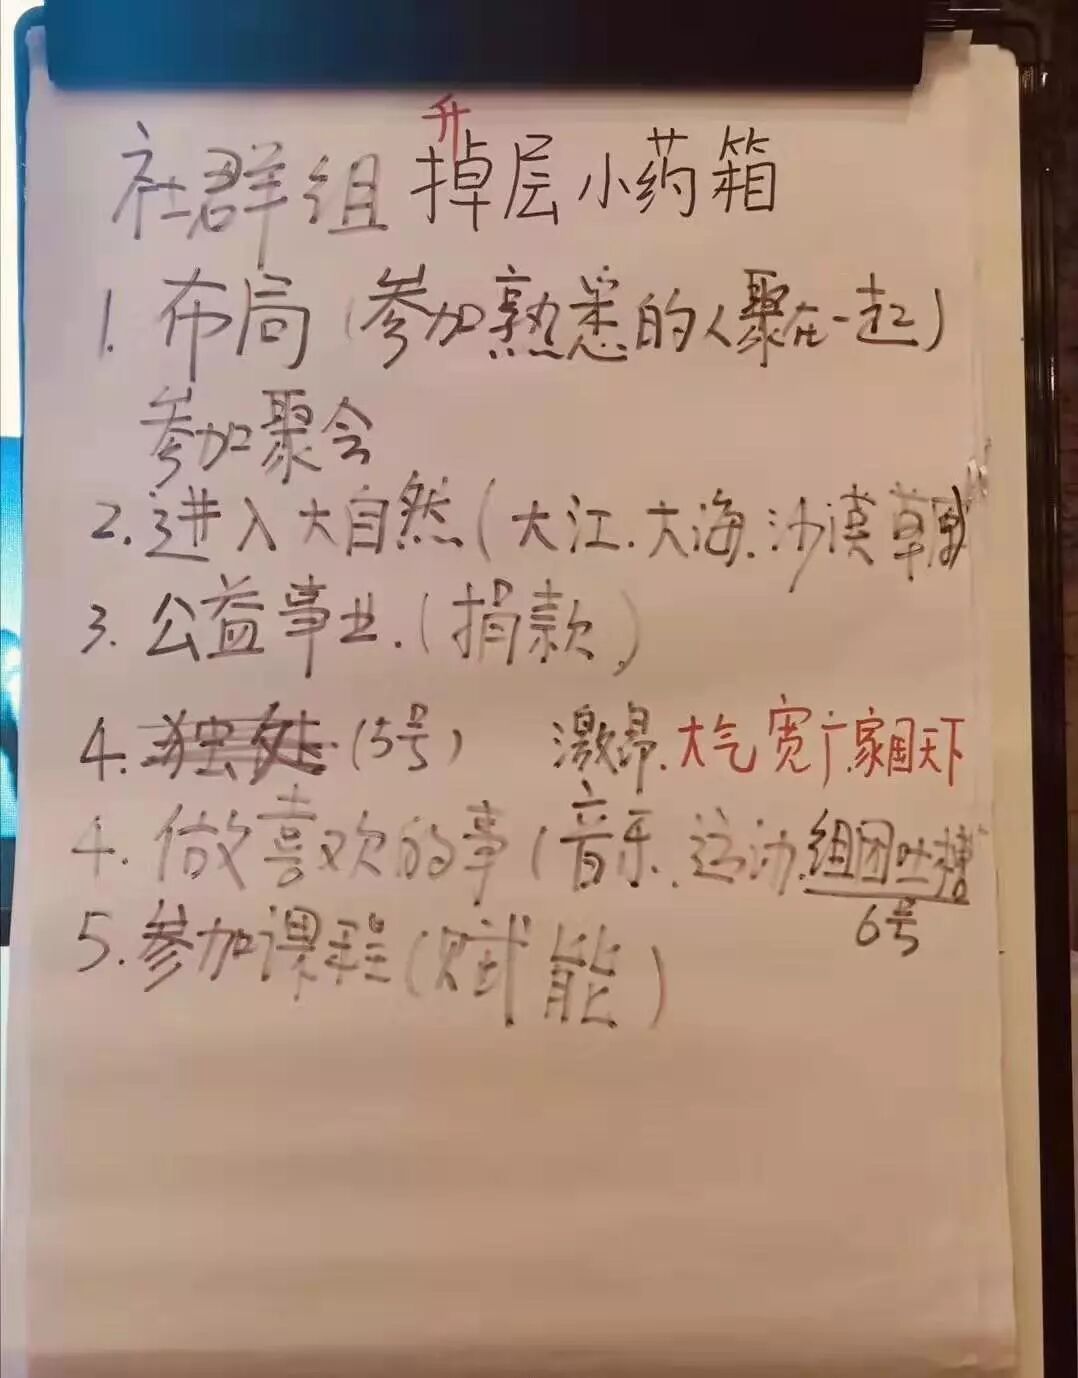 升
社群组 掉层小药箱
1. 布局(参加熟悉的人聚在一起)
参加聚会
2. 进入大自然(大江.大海.沙漠草原
3. 公益事业.(捐款)
4. 独处.(5号) 激昂.大气宽广.家国天下
4. 做喜欢的事(音乐.运动.组团吐槽
6号
5. 参加课程(赋能)